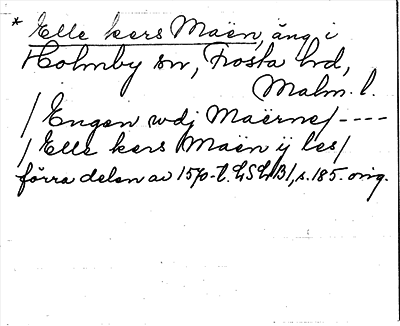 * Elle kers Maën, äng i
Holmby sn, Frosta hd,
Malm. l.
/Engen wdj Maërne/ ----
/Elle kers Maën ÿ les/
förra delen av 1570-t. LSLB1, s. 185. orig.